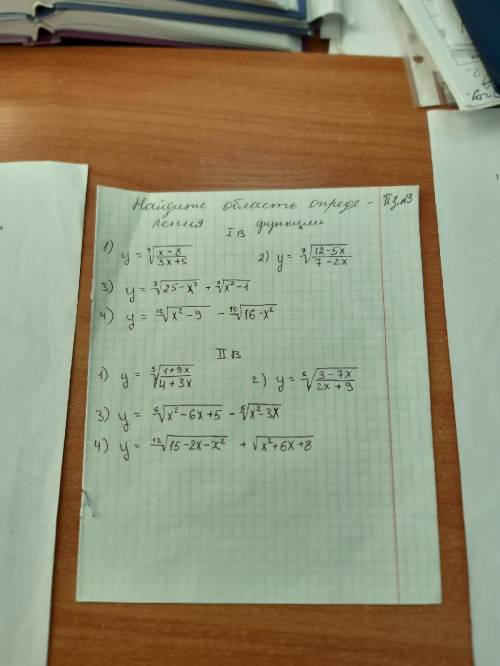 Найдите область опреде- Пз.№3
ления функции
I В
1) y = ⁴√((x-8)/(3x+5)) 2) y = ⁷√((12-5x)/(7-2x))
3) y = ³√(25-x²) + ⁸√(x²-1)
4) y = ¹²√(x²-9) - ¹⁰√(16-x²)
II В
1) y = ⁵√((1+9x)/(4+3x)) 2) y = ⁶√((3-7x)/(2x+9))
3) y = ⁶√(x²-6x+5) - ⁵√(x²-3x)
4) y = ¹²√(15-2x-x²) + √(x²+6x+8)